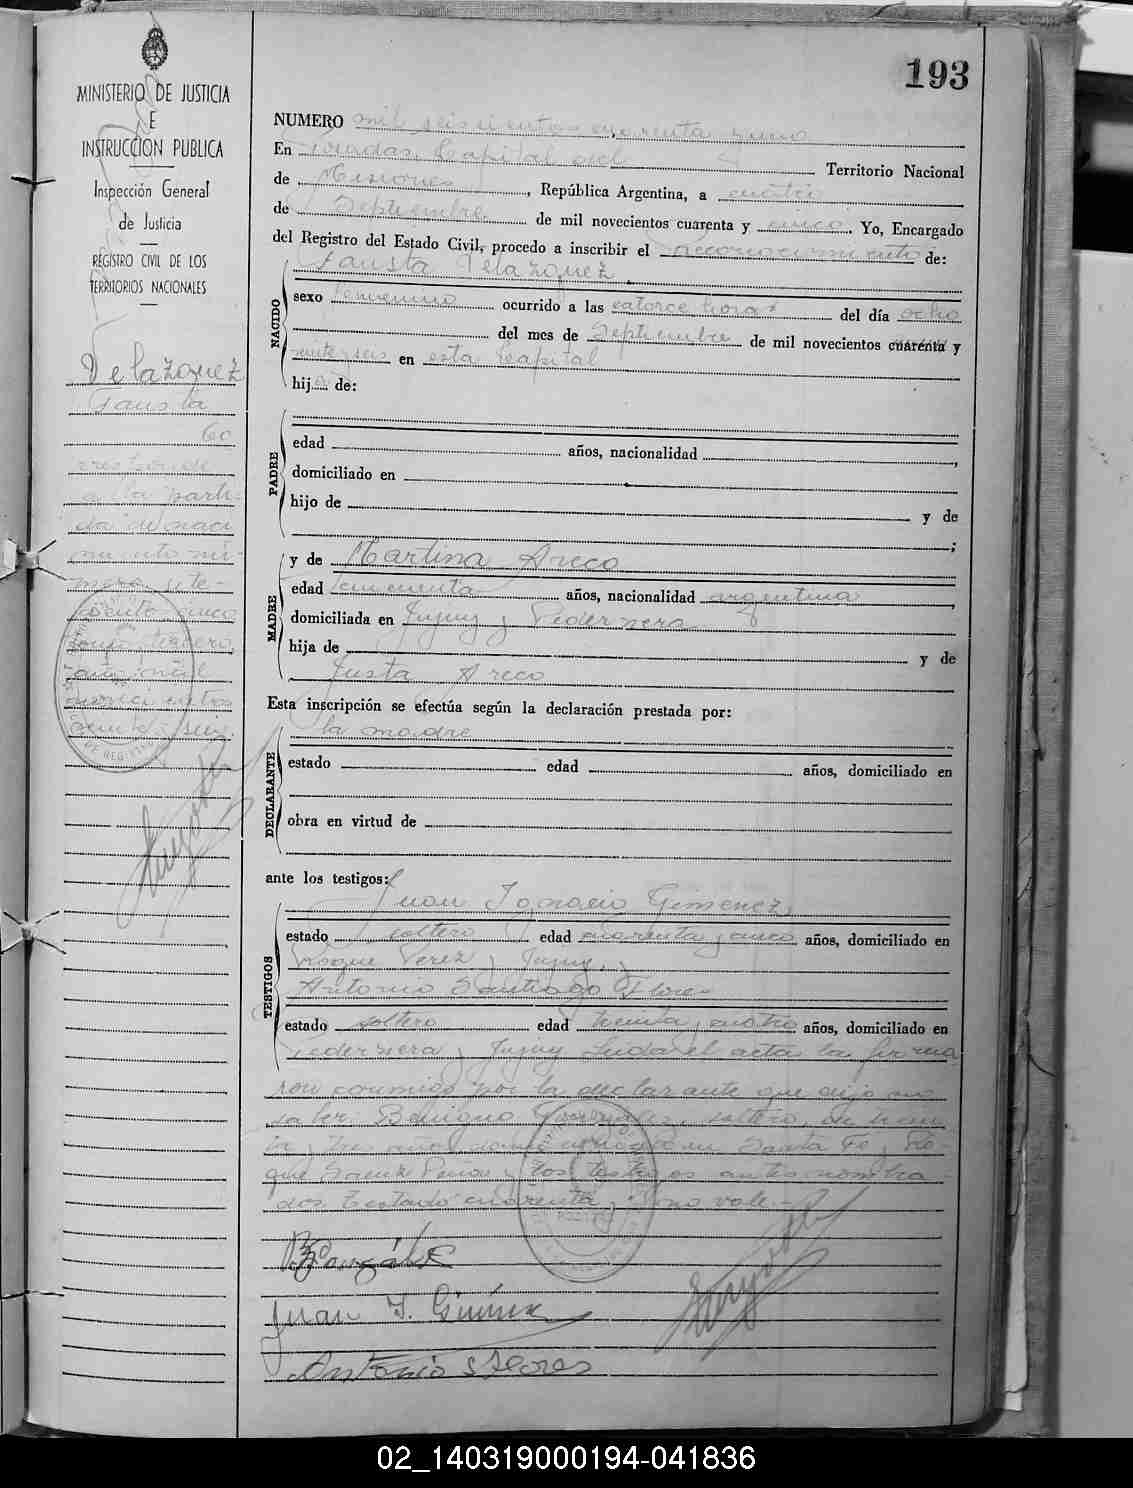 193
MINISTERIO DE JUSTICIA
E
INSTRUCCION PUBLICA
Inspección General
de Justicia
REGISTRO CIVIL DE LOS
TERRITORIOS NACIONALES
Velazquez
Fausta
Co
rresponde
a la parti-
da de naci
miento nú-
mero sete-
cientos cinco
tomo
año mil
novecientos
veinte y seis.
NUMERO mil seiscientos cuarenta y uno
En Posadas, Capital del Territorio Nacional
de Misiones, República Argentina, a cuatro
de Septiembre de mil novecientos cuarenta y cinco. Yo, Encargado
del Registro del Estado Civil, procedo a inscribir el reconocimiento de:
Fausta Velazquez
NACIDO
sexo femenino ocurrido a las catorce horas del día ocho
del mes de Septiembre de mil novecientos cuarenta y
veinte y seis en esta Capital
hija de:
PADRE
edad años, nacionalidad ,
domiciliado en
hijo de y de
;
MADRE
y de Martina Areco
edad cincuenta años, nacionalidad argentina,
domiciliada en Jujuy y Pedernera
hija de y de
Justa Areco
Esta inscripción se efectúa según la declaración prestada por:
la madre
DECLARANTE
estado edad años, domiciliado en
obra en virtud de
ante los testigos:
Juan Ignacio Gimenez
TESTIGOS
estado soltero edad cuarenta y cinco años, domiciliado en
Roque Perez y Jujuy, y
Antonio Santiago Flores
estado soltero edad treinta y cuatro años, domiciliado en
Pedernera y Jujuy Leída el acta la firma
ron conmigo por la declarante que dijo no
saber Benigno Gonzalez, soltero, de trein
ta y tres años domiciliado en Santa Fé y Ro-
que Saenz Peña y los testigos antes nombra
dos. Testado: cuarenta y: no vale.-
B González
Juan I. Giménez
Antonio S Flores
02_140319000194-041836